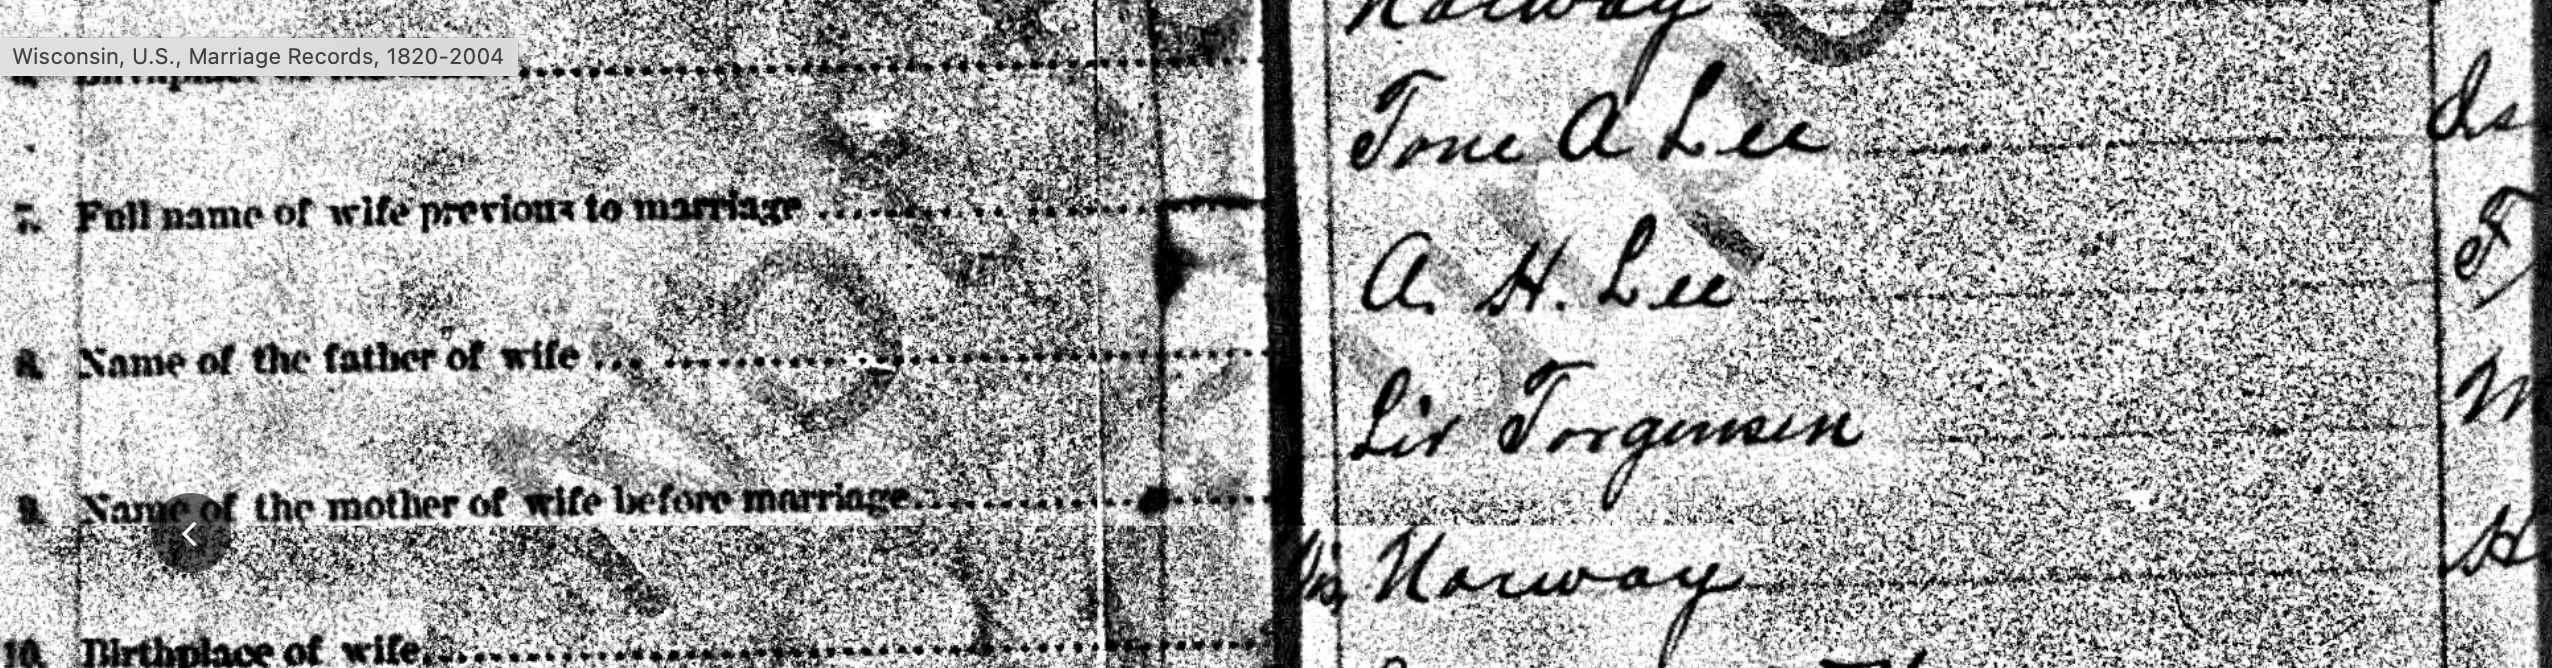 Norway
Wisconsin, U.S., Marriage Records, 1820-2004
Tone A Lee
7. Full name of wife previous to marriage
A. H. Lee
8. Name of the father of wife
Liv Torgensen
9. Name of the mother of wife before marriage
Norway
10. Birthplace of wife